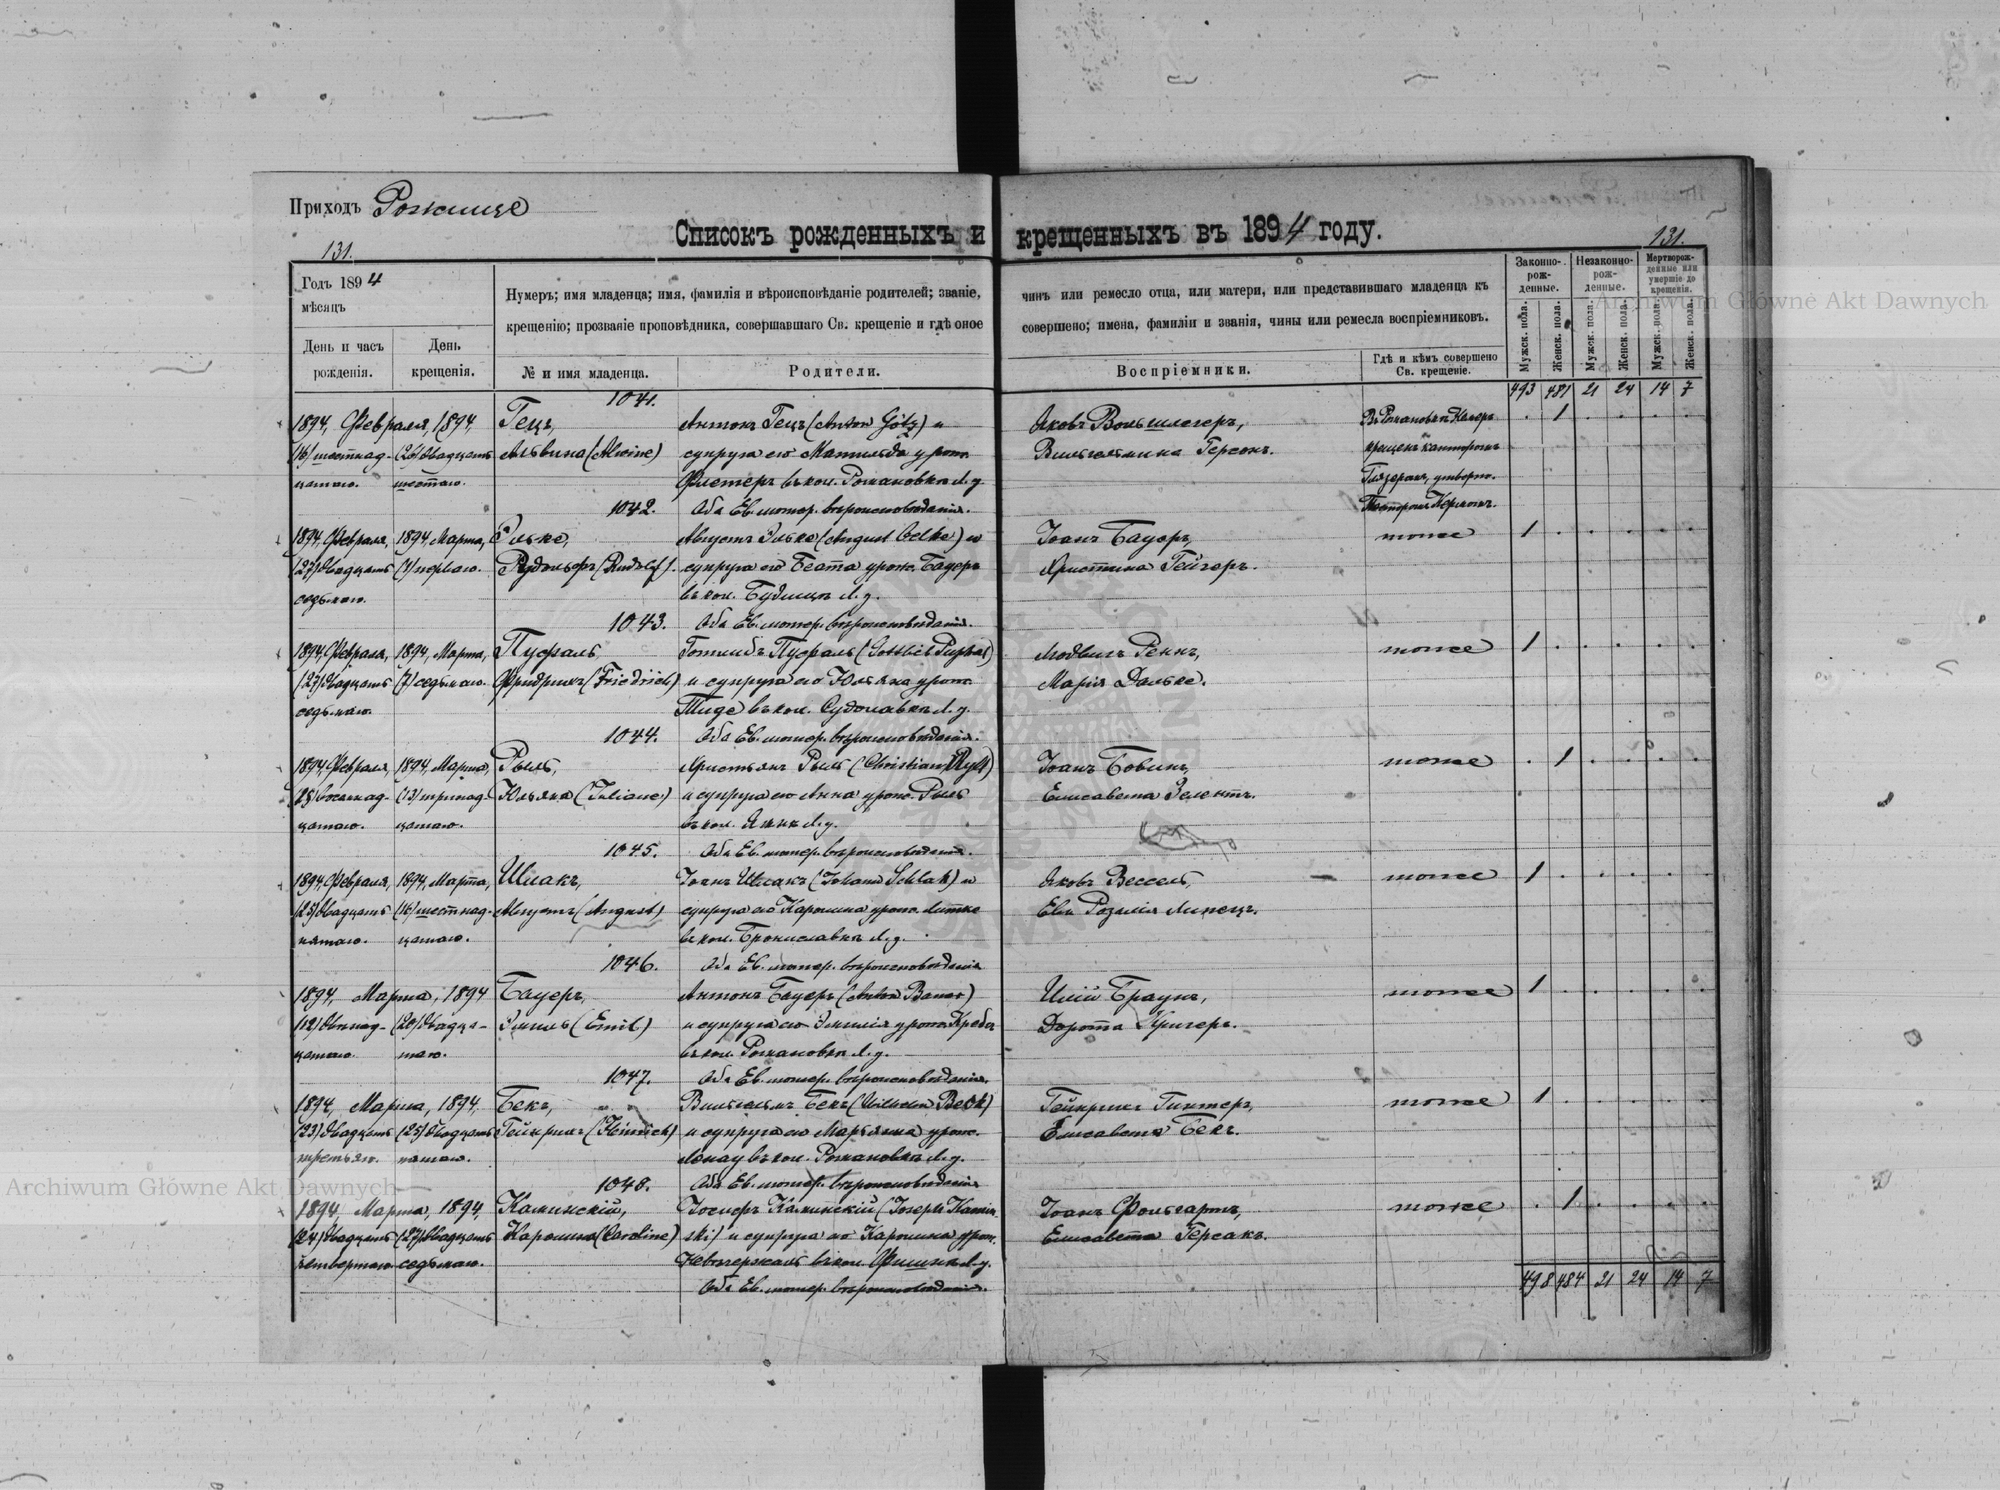 Приходъ Рожище
Списокъ рожденныхъ и крещенныхъ въ 1894 году.
131.
131.
Годъ 1894
мѣсяцъ
День и часъ
рожденія.
День
крещенія.
Нумеръ; имя младенца; имя, фамилія и вѣроисповѣданіе родителей; званіе,
крещенію; прозваніе проповѣдника, совершавшаго Св. крещеніе и гдѣ оное
№ и имя младенца.
Родители.
чинъ или ремесло отца, или матери, или представившаго младенца къ
совершено; имена, фамиліи и званія, чины или ремесла воспріемниковъ.
Воспріемники.
Гдѣ и кѣмъ совершено
Св. крещеніе.
Законно-
рож-
денные.
Незаконно-
рож-
денные.
Мертворож-
денные или
умершіе до
крещенія.
Мужск. пола.
Женск. пола.
Мужск. пола.
Женск. пола.
Мужск. пола.
Женск. пола.
493 481 21 24 14 7
1041.
1894, Февраля, 1894, Гецъ, Антонъ Гецъ (Anton Götz) и Яковъ Вольшлегеръ, 1
(16) шестнад- (26) двадцать Альвина (Alwine) супруга его Матильда урож. Вильгельмина Герсонъ. крещенъ канторомъ
цатаго. шестаго. въ кол. Романовка Л. у.
1042. Оба Ев. лютер. вѣроисповѣданія.
1894, Февраля, 1894, Марта, Эльке, Августъ Эльке (August Oelke) и Іоанъ Бауеръ, тоже 1
(27) двадцать (1) перваго. Рудольфъ (Rudolf). супруга его Беата урож. Бауеръ Христина Гейгеръ.
седьмаго. въ кол. Будище Л. у.
1043. Оба Ев. лютер. вѣроисповѣданія.
1894, Февраля, 1894, Марта, Пуфаль Готлибъ Пуфаль (Gottlieb Pufhal) Людвигъ Реннъ, тоже 1
(27) двадцать (7) седьмаго. Фридрихъ (Friedrich) и супруга его Юльяна урож. Марія Дальке.
седьмаго. Тиде въ кол. Л. у.
1044. Оба Ев. лютер. вѣроисповѣданія.
1894, Февраля, 1894, Марта, Рыль, Христьянъ Рыль (Christian Ryll) Іоанъ Бовинъ, тоже 1
(18) восемнад- (13) тринад- Юльяна (Juliane) и супруга его Анна урож. Рыль Елисавета Зелентъ.
цатаго. цатаго. въ кол. Л. у.
1045. Оба Ев. лютер. вѣроисповѣданія.
1894, Февраля, 1894, Марта, Шлакъ, Іоанъ Шлакъ (Johann Schlak) и Яковъ Вессель, тоже 1
(25) двадцать (16) шестнад- Августъ (August) супруга его Каролина урож. Литке Ева Розалія Липецъ.
пятаго. цатаго. въ кол. Брониславка Л. у.
1046. Оба Ев. лютер. вѣроисповѣданія
1894, Марта, 1894 Бауеръ, Антонъ Бауеръ (Anton Bauer) Юлій Браунъ, тоже 1
(12) двѣнад- (20) двадца- Эмиль (Emil) и супруга его Эмилія урож. Кребсъ Дорота Кригеръ.
цатаго. таго. въ кол. Романовка Л. у.
1047. Оба Ев. лютер. вѣроисповѣданія.
1894, Марта, 1894, Бекъ, Вильгельмъ Бекъ (Wilhelm Beck) Гейнрихъ Гинтеръ, тоже 1
(23) двадцать (25) двадцать Гейнрихъ (Heinrich) и супруга его Марьяна урож. Елисавета Бекъ.
третьяго. пятаго. въ кол. Романовка Л. у.
1048. Оба Ев. лютер. вѣроисповѣданія
1894 Марта, 1894, Каминскій, Іосифъ Каминскій (Joseph Kamin- Іоанъ Фольгартъ, тоже 1
(24) двадцать (27) двадцать Каролина (Caroline) ski) и супруга его Каролина урож. Елисавета Герсакъ.
четвертаго седьмаго. въ кол. Л. у.
Оба Ев. лютер. вѣроисповѣданія.
498 484 21 24 14 7
Archiwum Główne Akt Dawnych
Archiwum Główne Akt Dawnych